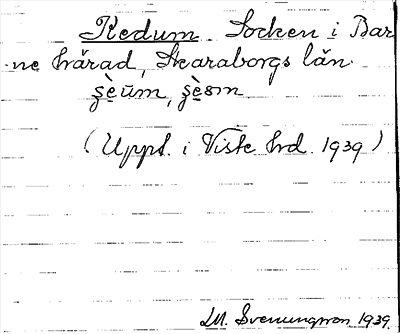 Kedum Socken i Bar
ne härad, Skaraborgs län.
(Uppt. i Viste hd. 1939)
M. Svenungsson 1939.